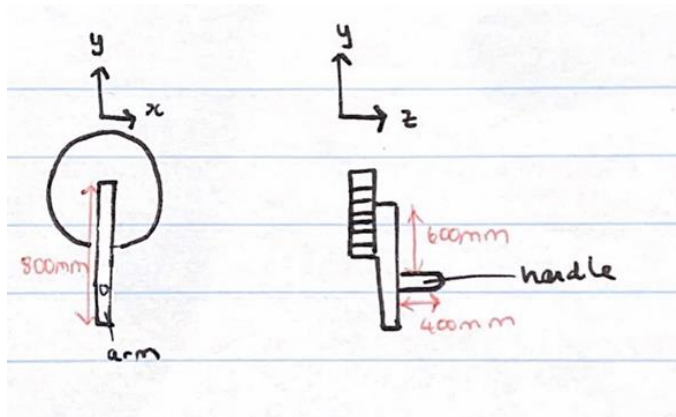 y
x
800mm
arm
y
z
600mm
handle
400mm